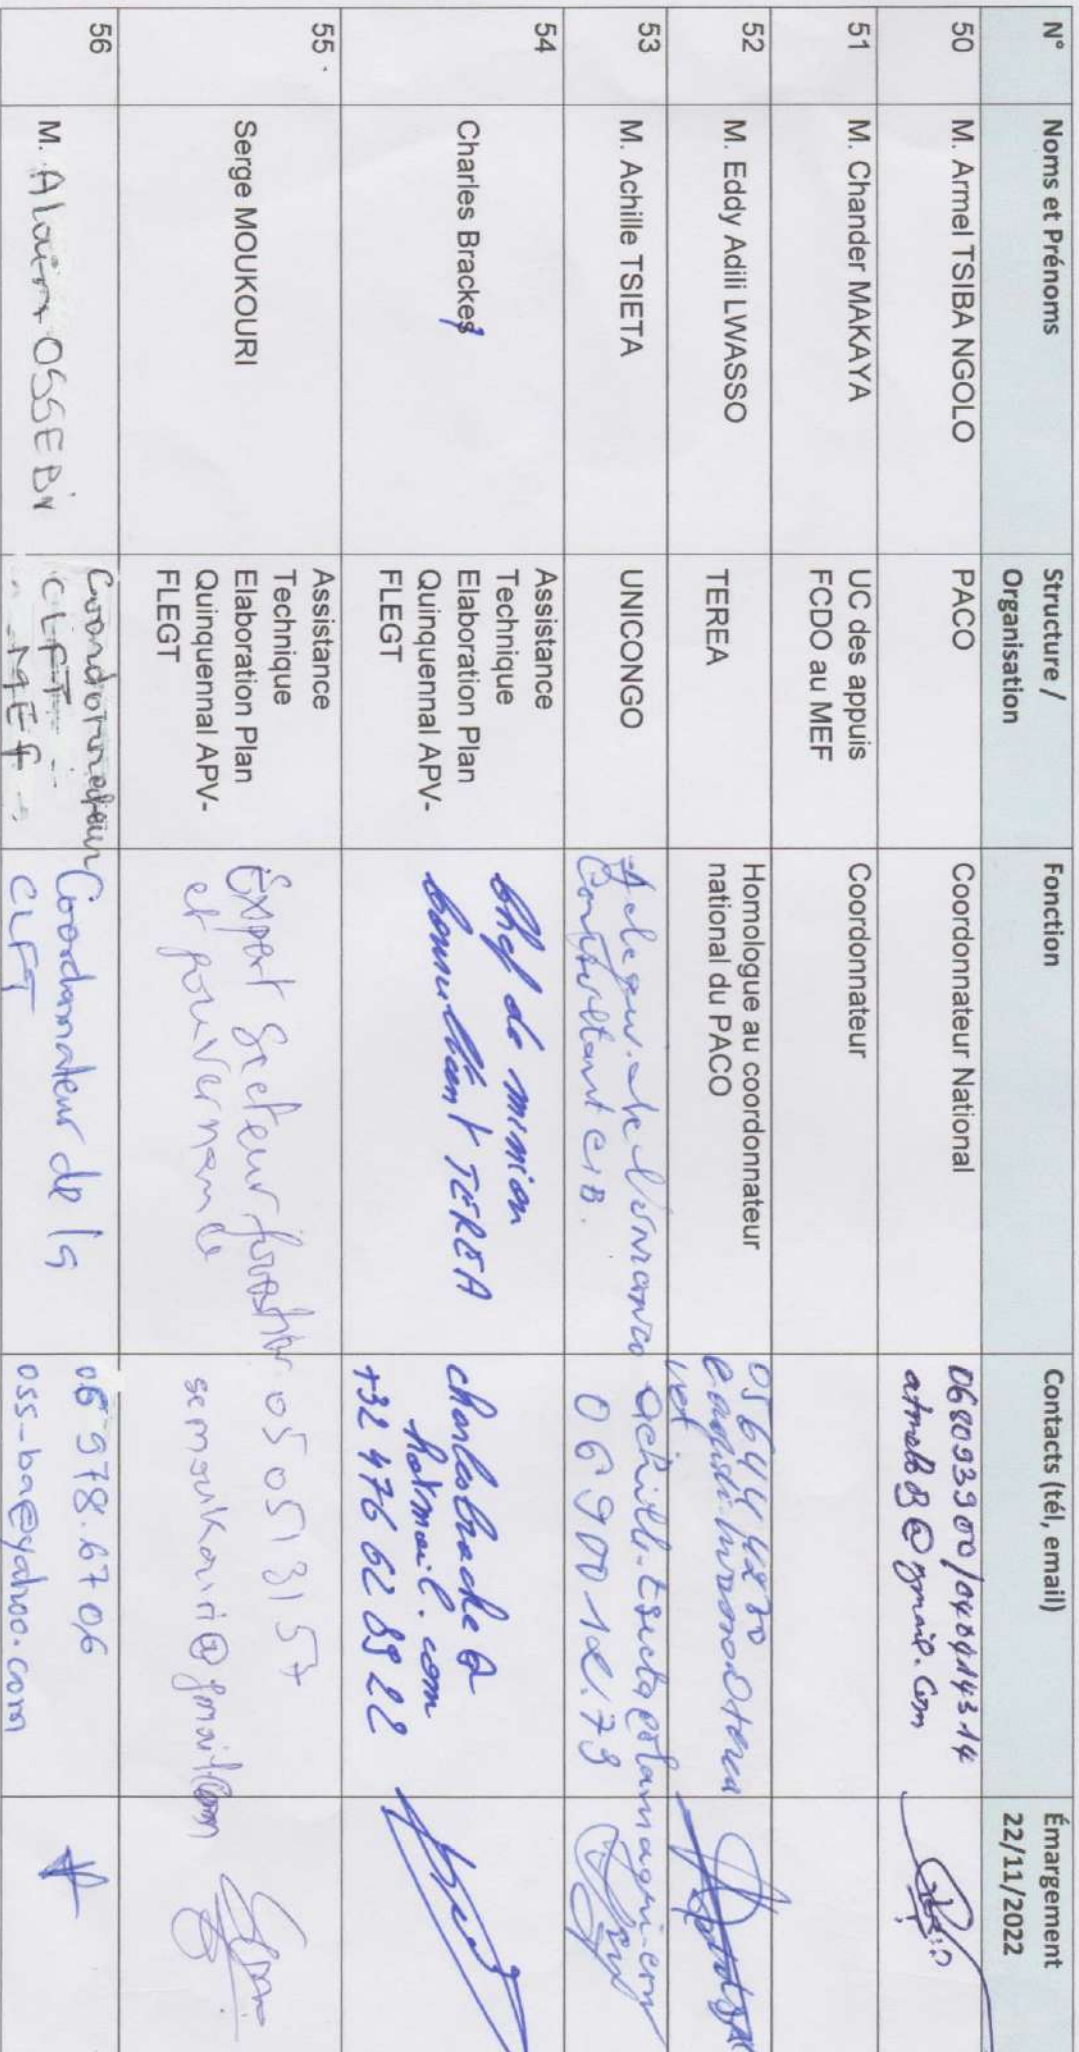 N° Noms et Prénoms Structure / Organisation Fonction Contacts (tél, email) Émargement 22/11/2022
50 M. Armel TSIBA NGOLO PACO Coordonnateur National
@gmail.com
51 M. Chander MAKAYA UC des appuis FCDO au MEF Coordonnateur
52 M. Eddy Adili LWASSO TEREA Homologue au coordonnateur national du PACO
53 M. Achille TSIETA UNICONGO
Consultant CIB.
54 Charles Brackes Assistance
Technique
Elaboration Plan
Quinquennal APV-
FLEGT
Chef de mission
Consultant TEREA
hotmail.com
+32 476 62 89 22
55. Serge MOUKOURI Assistance
Technique
Elaboration Plan
Quinquennal APV-
FLEGT
Expert Secteur forestier
et gouvernance
05 505 31 57
semoukouri@gmail.com
56 M. Alain OSSEBI
CLFT
MEF
Coordonnateur de la
CLFT
06 978.67 06
oss-ba@yahoo.com